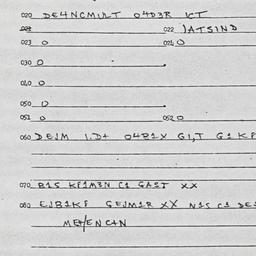 020 DE4NCMULT O4D3R ICT
022 JATSIND
023 O 024 O
030 O
040 O
050 O
051 O 052 O
060 DEJM I.D+ O4B1X G1,T G1KF
070 B1S KF1M3N C1 GAST XX
080 EJB1KF GEJM1R XX N1S C1 DE1